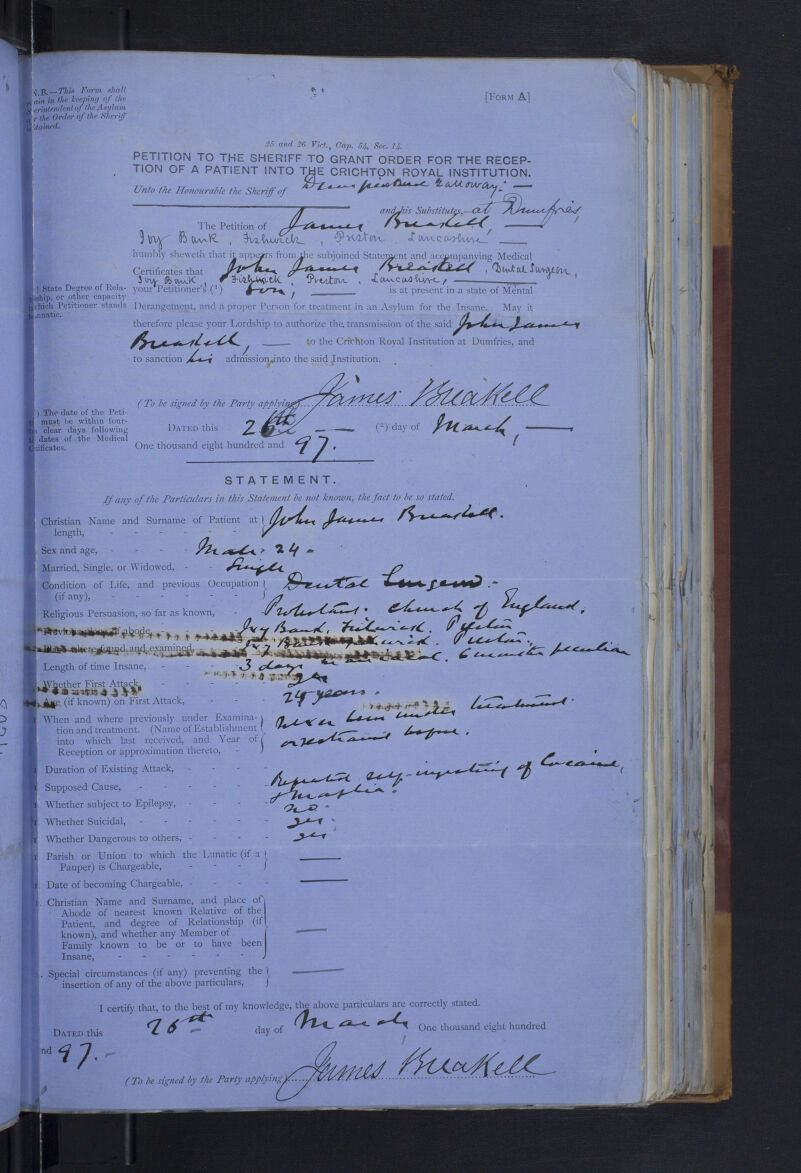 N.B.—This Form shall
in the keeping of the
of the Asylum
the Order of the Sheriff
[FORM A]
25 and 26 Vict., Cap. 54, Sec. 14.
PETITION TO THE SHERIFF TO GRANT ORDER FOR THE RECEP-
TION OF A PATIENT INTO THE CRICHTON ROYAL INSTITUTION.
Unto the Honourable the Sheriff of Dumfries and Galloway. —
and his Substitutes, at Dumfries,
The Petition of James Breakell, —
Ivy Bank, Fishwick, Preston, Lancashire, —
humbly sheweth that it appears from the subjoined Statement and accompanying Medical
Certificates that John James Breakell, Dental Surgeon,
Ivy Bank Fishwick, Preston, Lancashire, —
State Degree of Rela-
or other capacity
which Petitioner stands
your Petitioner's (¹) son, — is at present in a state of Mental
Derangement, and a proper Person for treatment in an Asylum for the Insane. May it
therefore please your Lordship to authorize the transmission of the said John James
Breakell, — to the Crichton Royal Institution at Dumfries, and
to sanction his admission into the said Institution.
(To be signed by the Party applying) James Breakell
The date of the Peti-
must be within four-
clear days following
dates of the Medical
DATED this 26th — (²) day of March, —
One thousand eight hundred and 97.
STATEMENT.
If any of the Particulars in this Statement be not known, the fact to be so stated.
Christian Name and Surname of Patient at John James Breakell.
length, - - - - - -
Sex and age, - - - - Male. 24 -
Married, Single, or Widowed, - - Single
Condition of Life, and previous Occupation Dental Surgeon. -
(if any), - - - - - -
Religious Persuasion, so far as known, - Protestant. Church of England.
abode, Ivy Bank, Fishwick, Preston
found and examined, Preston.
Length of time Insane, - - - - 3 days 6 months peculiar
Whether First Attack, yes
Age (if known) on First Attack, - - - 24 years.
When and where previously under Examina- never been under treatment
tion and treatment. (Name of Establishment or restraint before.
into which last received, and Year of
Reception or approximation thereto, -
Duration of Existing Attack, - - -
Supposed Cause, - - - - - - Repeated self-injecting of Cocaine,
& Morphia.
Whether subject to Epilepsy, - - - no.
Whether Suicidal, - - - - - yes.
Whether Dangerous to others, - - - yes
Parish or Union to which the Lunatic (if a —
Pauper) is Chargeable, - - -
Date of becoming Chargeable, - - - —
Christian Name and Surname, and place of
Abode of nearest known Relative of the
Patient, and degree of Relationship (if
known), and whether any Member of —
Family known to be or to have been
Insane, - - - - - -
Special circumstances (if any) preventing the —
insertion of any of the above particulars,
I certify that, to the best of my knowledge, the above particulars are correctly stated.
DATED this 26th day of March, One thousand eight hundred
97. -
(To be signed by the Party applying) James Breakell